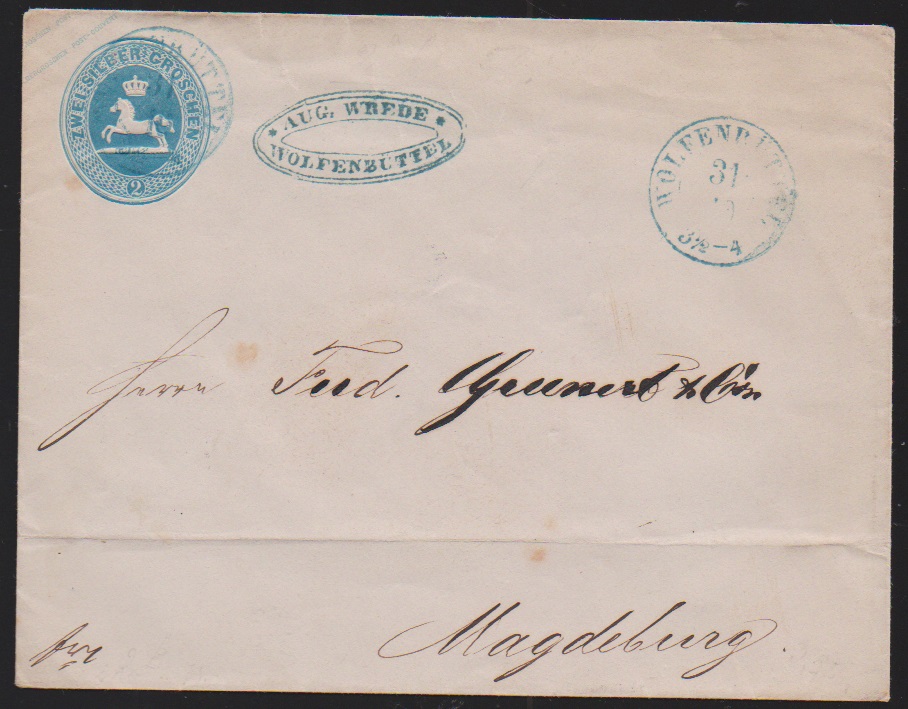 ZWEI SILBER GROSCHEN
2
* AUG. WREDE *
WOLFENBÜTTEL
WOLFENBÜTTEL
31
3½-4
Herrn Ferd. Grunert & Co
Magdeburg.